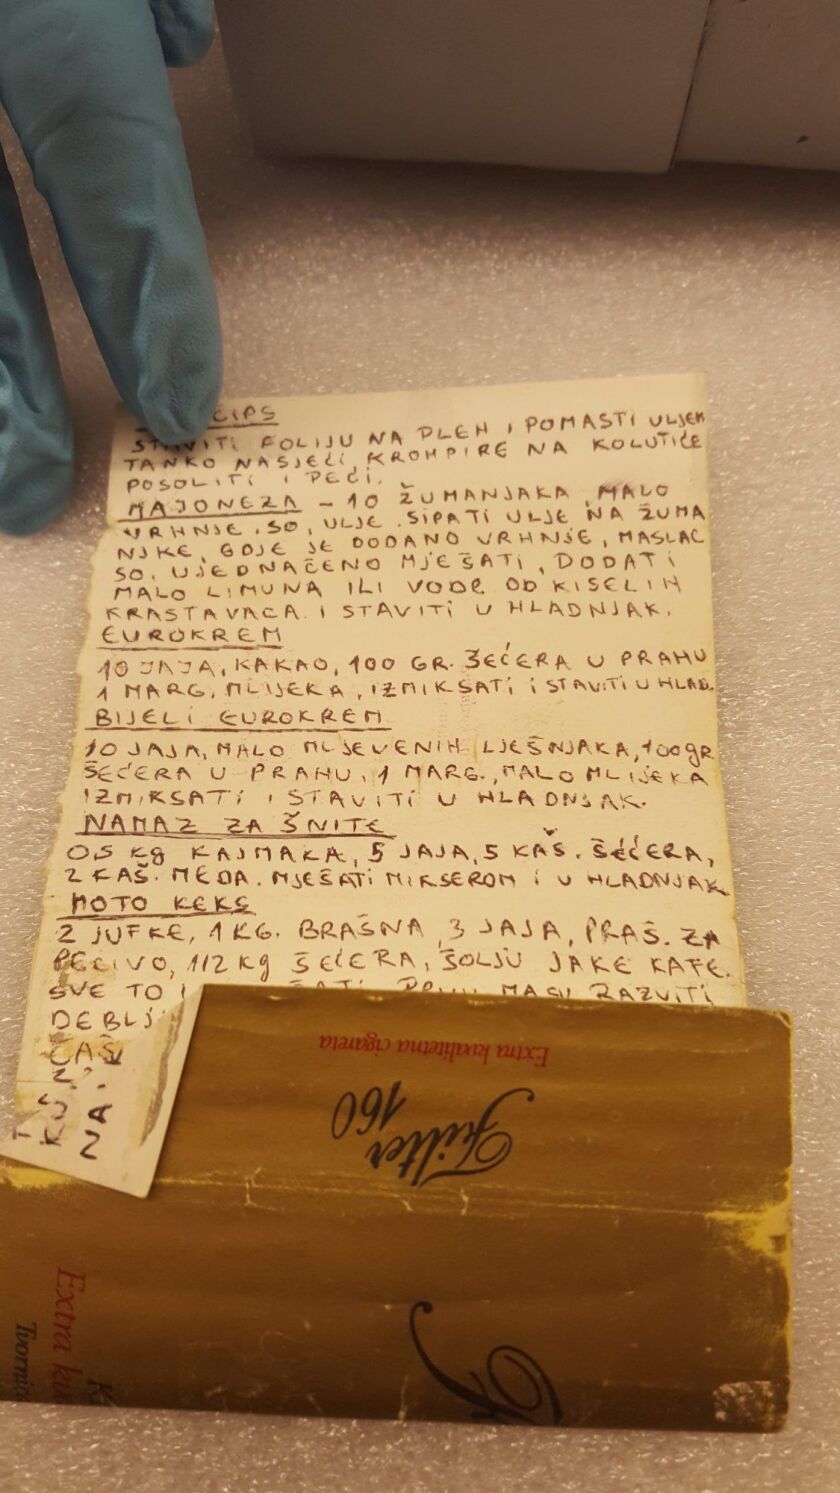 ČIPS
STAVITI FOLIJU NA PLEH I POMASTI ULJEM
TANKO NASJEĆI, KROMPIRE NA KOLUTIĆE
POSOLITI I PEĆI.
MAJONEZA - 10 ŽUMANJAKA, MALO
VRHNJE, SO, ULJE. SIPATI ULJE NA ŽUMA
NJKE, GDJE JE DODANO VRHNJE, MASLAC
SO. UJEDNAČENO MJEŠATI, DODATI
MALO LIMUNA ILI VODE OD KISELIH
KRASTAVACA I STAVITI U HLADNJAK.
EUROKREM
10 JAJA, KAKAO, 100 GR. ŠEĆERA U PRAHU
1 MARG, MLIJEKA, IZMIKSATI I STAVITI U HLAD.
BIJELI EUROKREM
10 JAJA, MALO MLJEVENIH LJEŠNJAKA, 100 gR
ŠEĆERA U PRAHU, 1 MARG., MALO MLIJEKA
IZMIKSATI I STAVITI U HLADNJAK.
NAMAZ ZA ŠNITE
0,5 Kg KAJMAKA, 5 JAJA, 5 KAŠ. ŠEĆERA,
2 KAŠ. MEDA. MJEŠATI MIKSEROM I U HLADNJAK
MOTO KEKS
2 JUFKE, 1 KG. BRAŠNA, 3 JAJA, PRAŠ. ZA
PECIVO, 1/2 Kg ŠEĆERA, ŠOLJU JAKE KAFE.
SVE TO RAZVITI
DEBLJ
ČAŠ
ZA
Extra kvalitetna cigareta
Filter
160
Extra kv
Tvornica